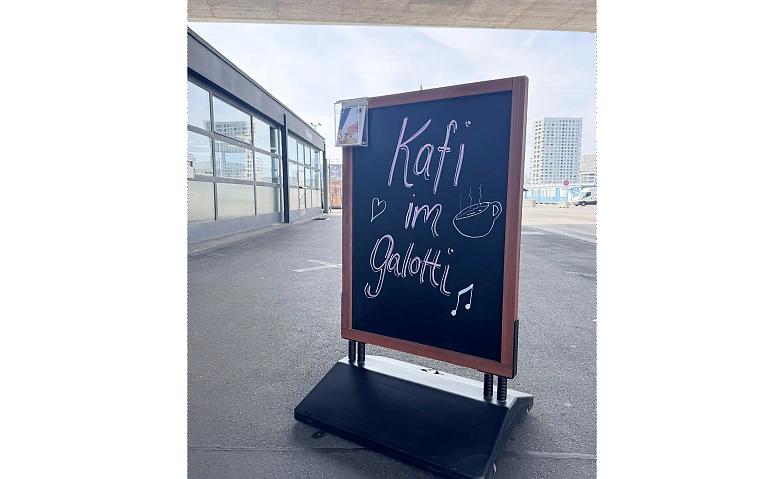 Kafi
im
Galotti